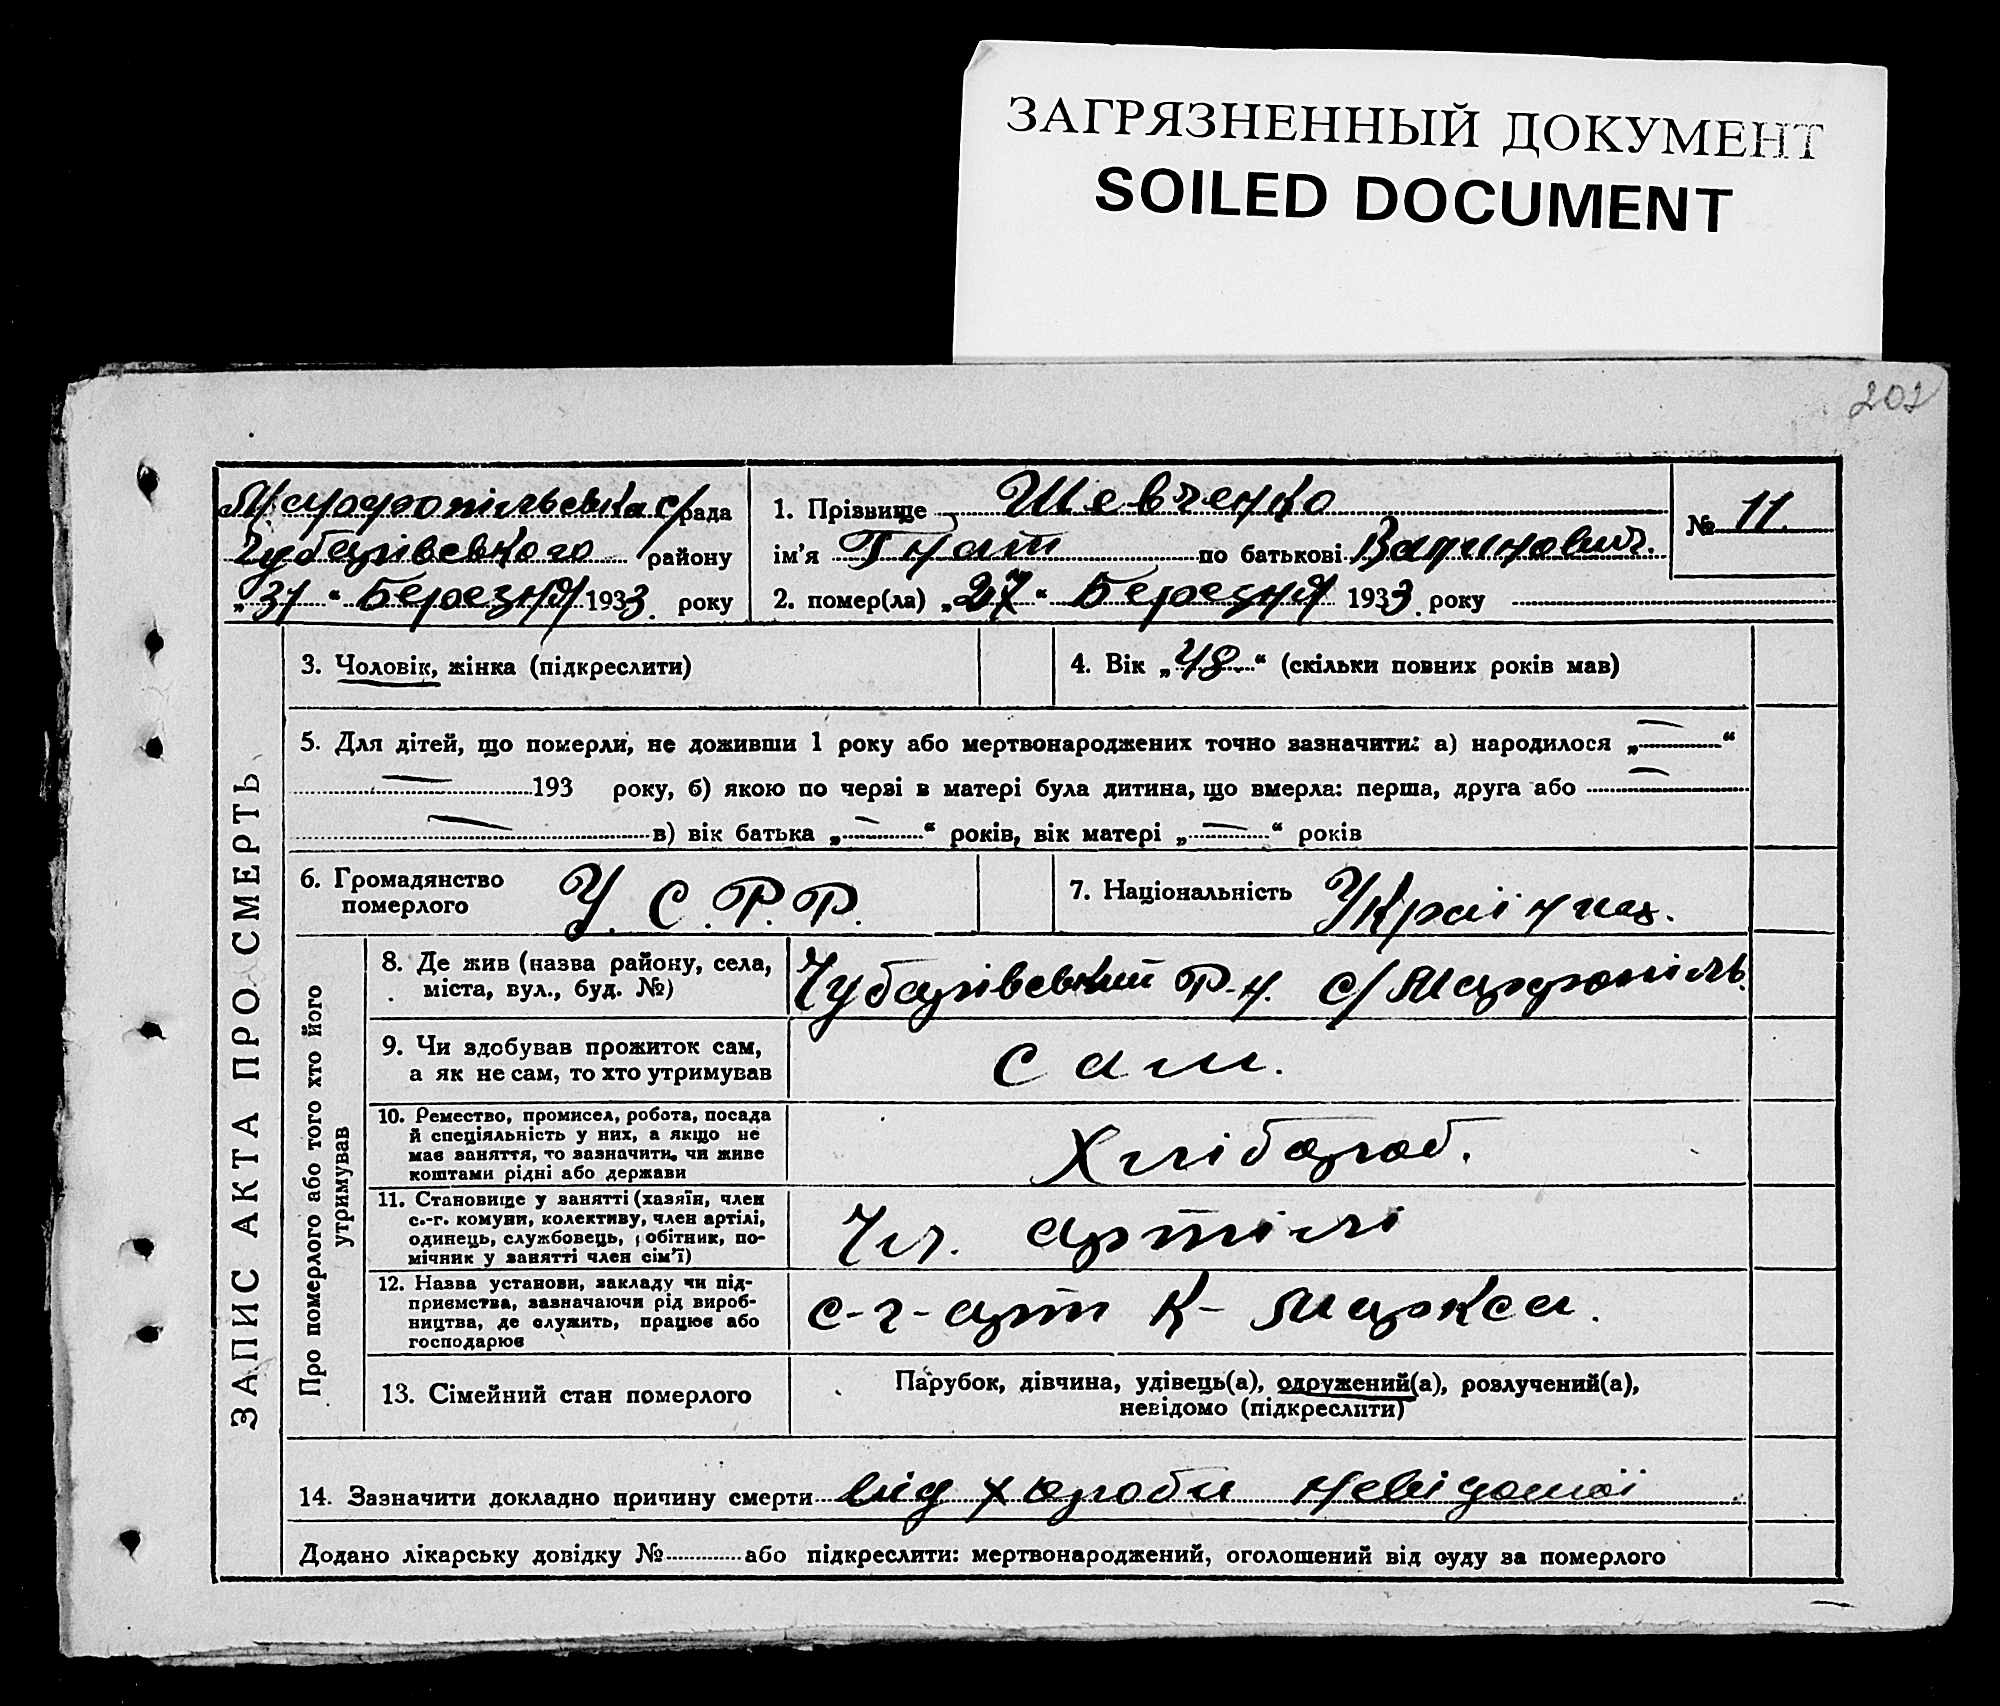 ЗАГРЯЗНЕННЫЙ ДОКУМЕНТ
SOILED DOCUMENT
202
Марфопільська с/рада
Чубарівського району
„31“ Березня 1933. року
1. Прізвище Шевченко
ім'я Гнат по батькові
2. помер(ла) „27“ Березня 1933. року
№ 11.
ЗАПИС АКТА ПРО СМЕРТЬ
3. Чоловік, жінка (підкреслити)
4. Вік „48“ (скільки повних років мав)
5. Для дітей, що померли, не доживши 1 року або мертвонароджених точно зазначити: а) народилося „—“
— 193 року, б) якою по черзі в матері була дитина, що вмерла: перша, друга або —
— в) вік батька „—“ років, вік матері „—“ років
6. Громадянство
померлого
У. С. Р. Р.
7. Національність Українец.
Про померлого або того хто його
утримував
8. Де жив (назва району, села,
міста, вул., буд. №)
Чубарівський Р-н. с/Марфопіль.
9. Чи здобував прожиток сам,
а як не сам, то хто утримував
Сам.
10. Ремество, промисел, робота, посада
й спеціяльність у них, а якщо не
має заняття, то зазначити, чи живе
коштами рідні або держави
Хлібороб.
11. Становище у занятті (хазяїн, член
с.-г. комуни, колективу, член артілі,
одинець, службовець, обітник, по-
мічник у занятті член сім'ї)
Чл. артілі
12. Назва установи, закладу чи під-
приємства, зазначаючи рід вироб-
ництва, де служить, працює або
господарює
с-г-арт К- Маркса.
13. Сімейний стан померлого
Парубок, дівчина, удівець(а), одружений(а), розлучений(а),
невідомо (підкреслити)
14. Зазначити докладно причину смерти від хороби невідомої
Додано лікарську довідку № або підкреслити: мертвонароджений, оголошений від суду за померлого